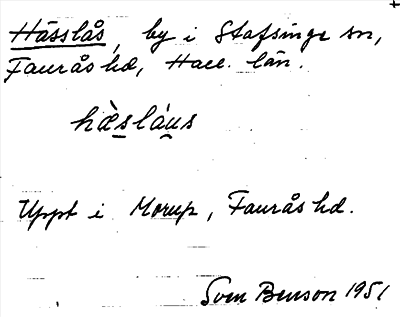 Hässlås, by i Stafsinge sn,
Faurås hd, Hall. län.
hæ̀slá̱u̱s
Uppt i Morup, Faurås hd.
Sven Benson 1951